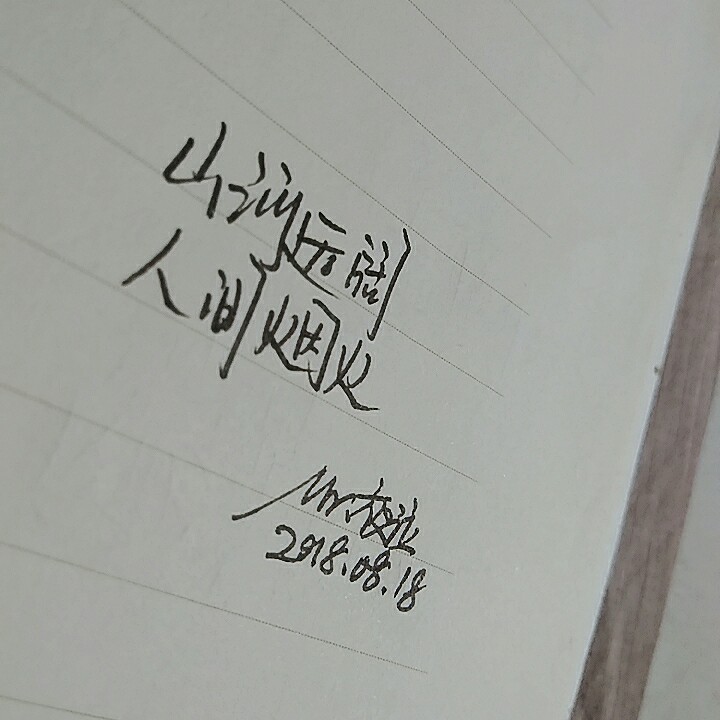 山河远阔
人间烟火
Mr.夜
2018.08.18